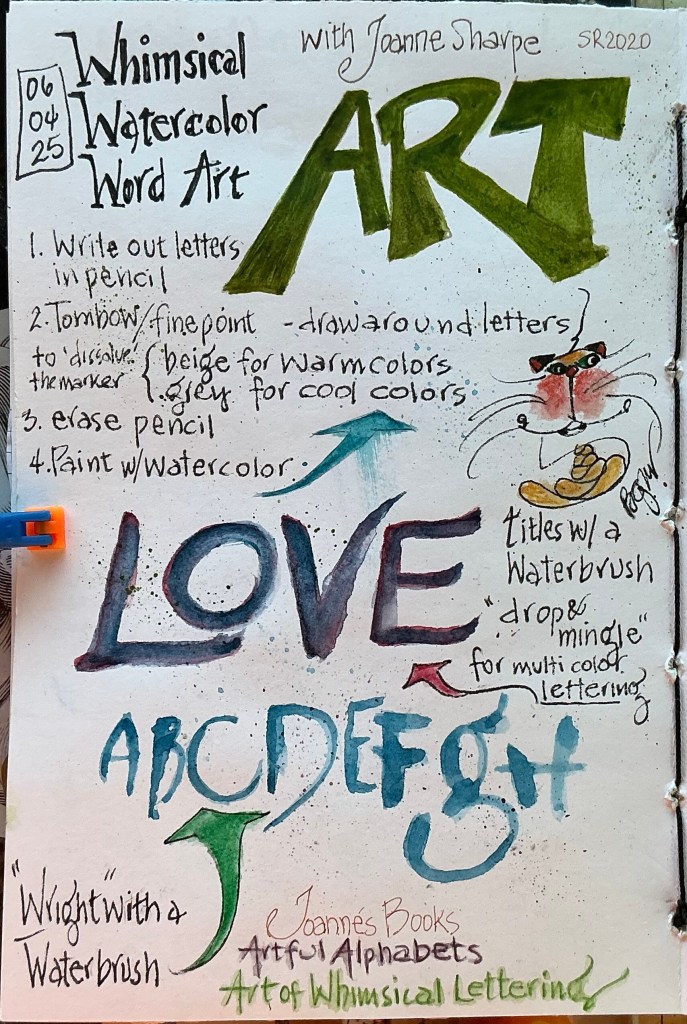 with Joanne Sharpe SR2020
Whimsical
Watercolor
Word Art
06
04
25
ART
1. Write out letters
in pencil
2. Tombow/fine point - draw around letters
to 'dissolve'
the marker
{ beige for warm colors
grey for cool colors
3. erase pencil
4. Paint w/watercolor
LOVE
titles w/a
Waterbrush
"drop &
mingle"
for multi color
lettering
ABCDEFgH
"Wright" with a
Waterbrush
Joanne's Books
Artful Alphabets
Art of Whimsical Lettering